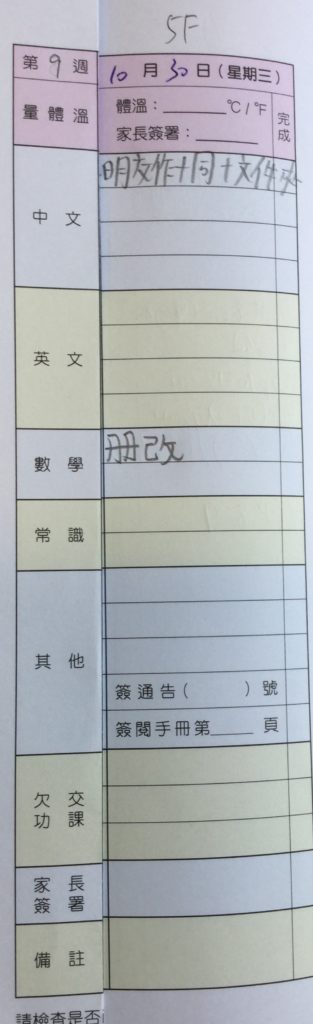 5F
第9週 10月30日(星期三)
量體溫 體溫:______°C/°F 完成
家長簽署:______
中文 明交作+同+文件夾
英文
數學 冊改
常識
其他
簽通告( )號
簽閱手冊第____頁
欠交功課
家長簽署
備註
請檢查是否